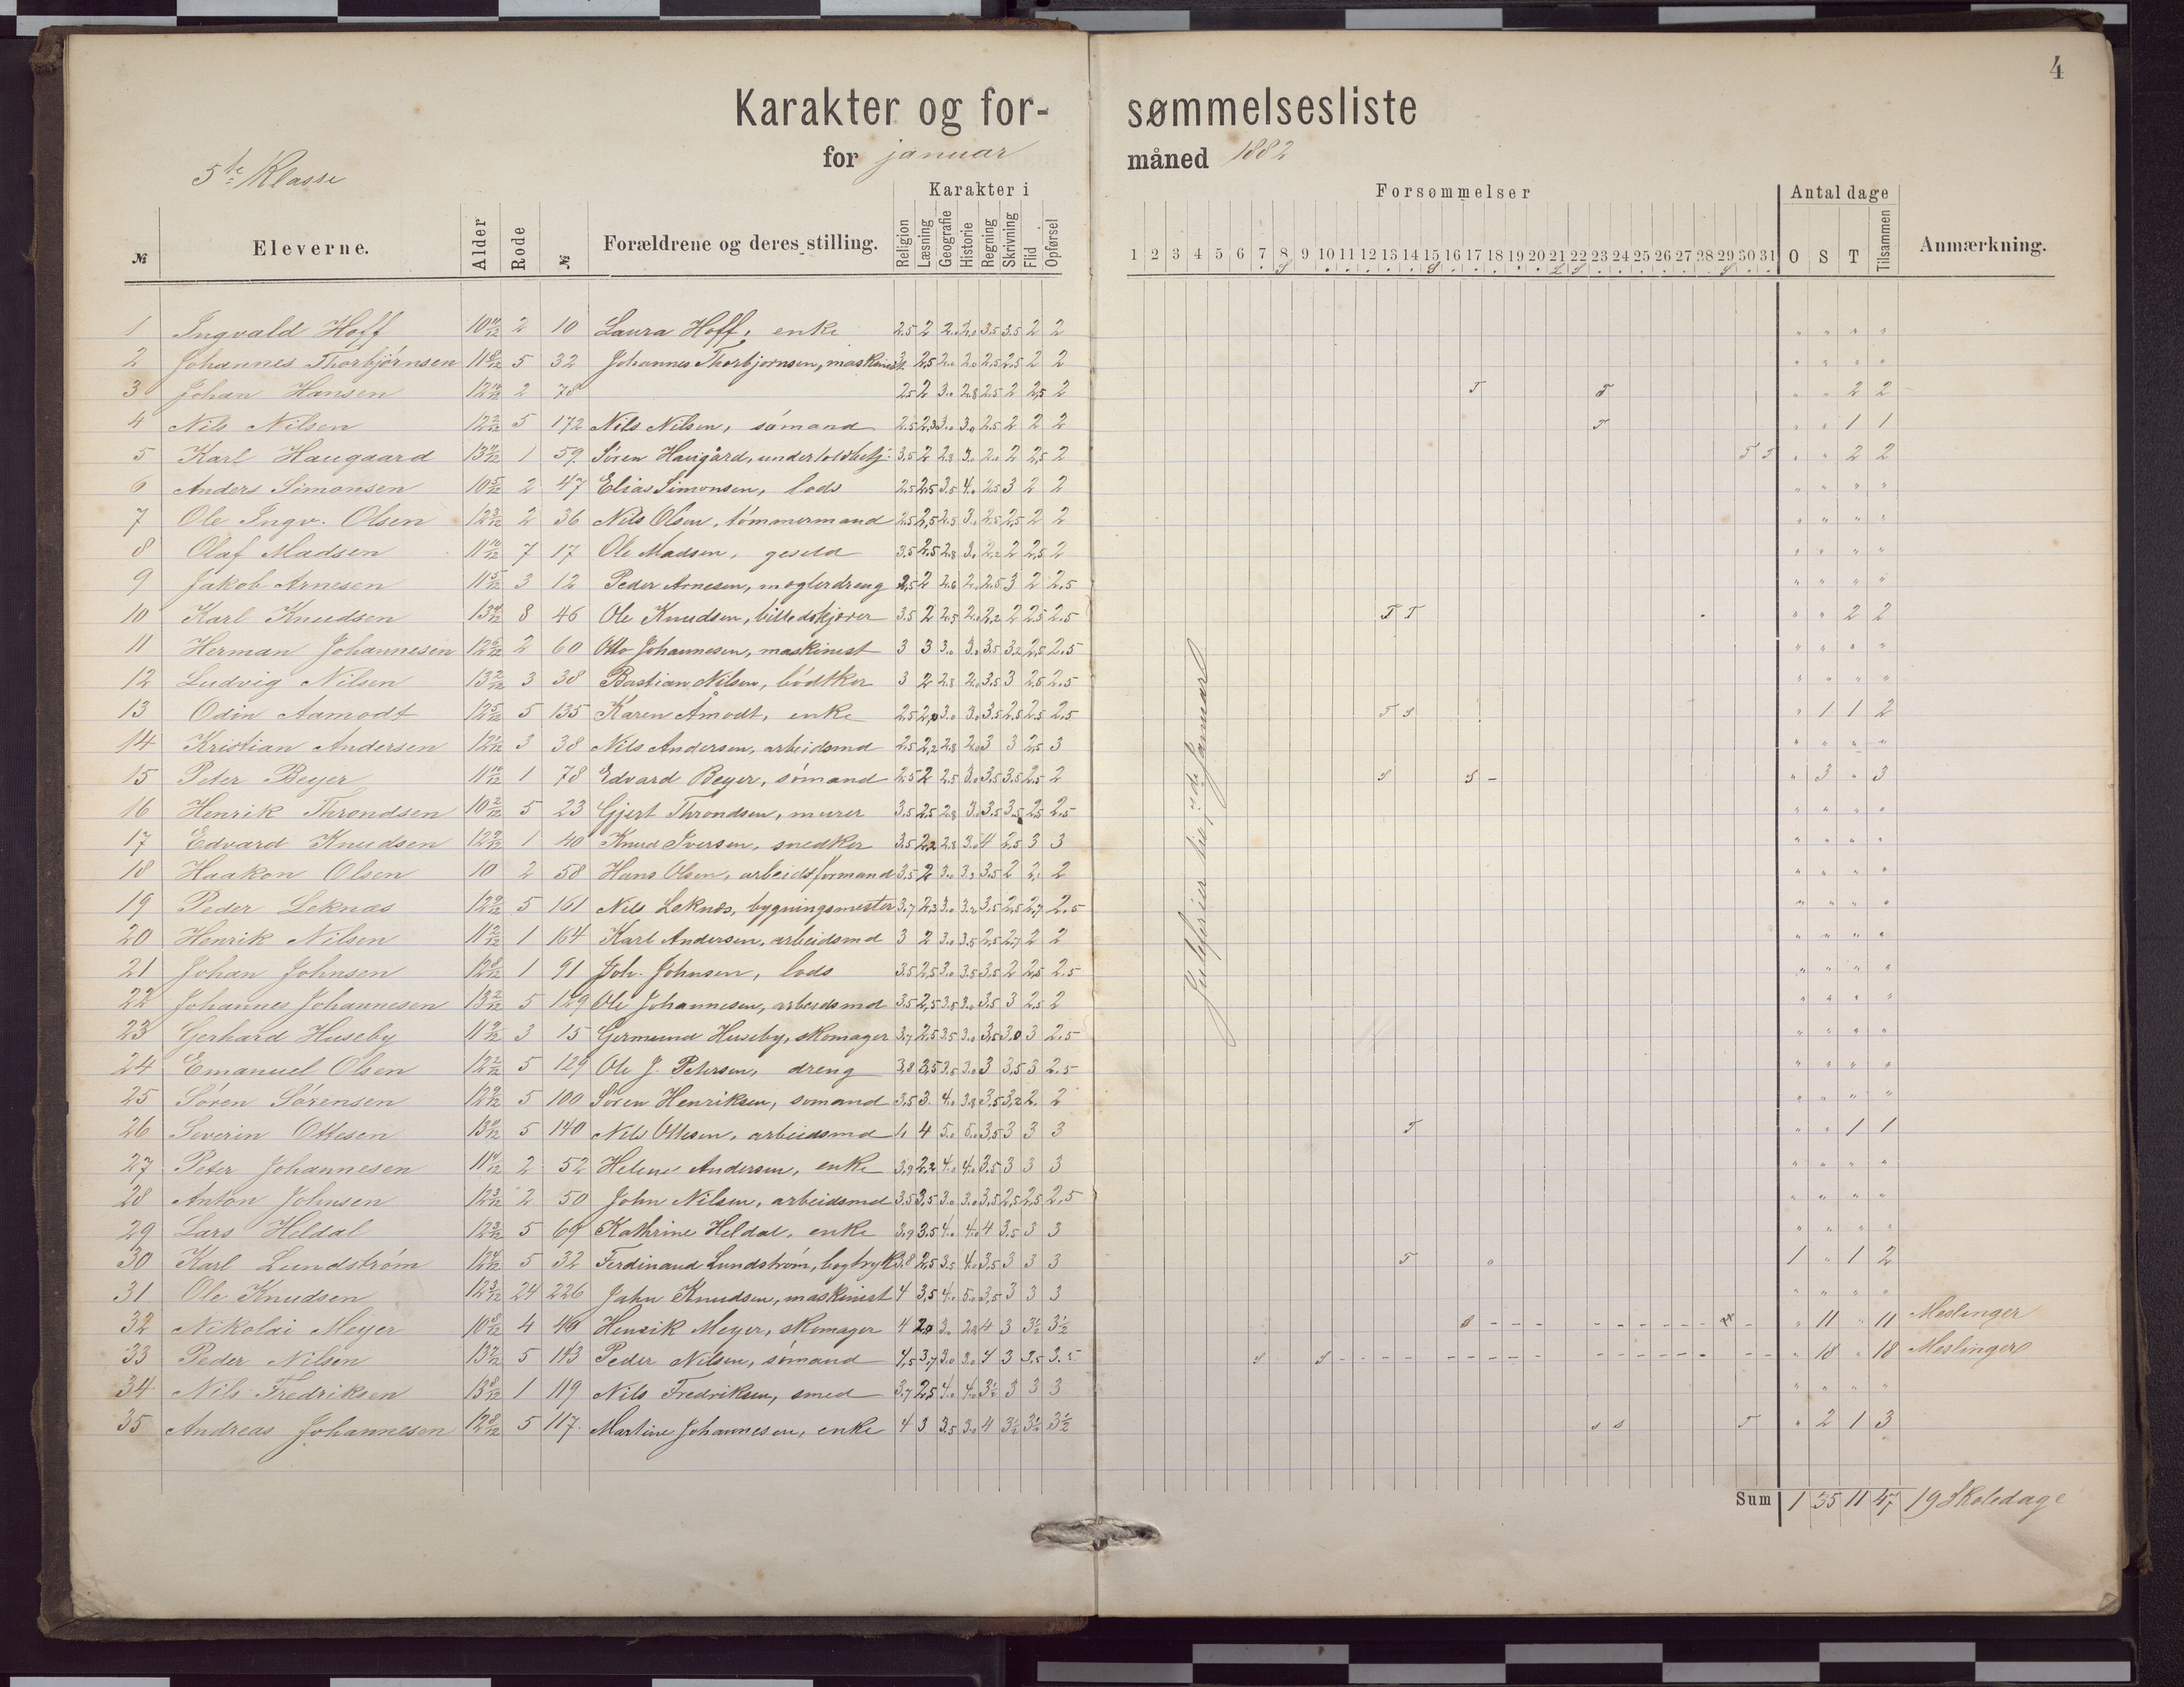 4
Karakter og for- sømmelsesliste
for januar måned 1882
5te Klasse
Karakter i Forsømmelser Antal dage
№ Eleverne. Alder Rode № Forældrene og deres stilling. Religion Læsning Geografie Historie Regning Skrivning Flid Opførsel 1 2 3 4 5 6 7 8 9 10 11 12 13 14 15 16 17 18 19 20 21 22 23 24 25 26 27 28 29 30 31 O S T Tilsammen Anmærkning.
1 Ingvald Hoff 2 10 Laura Hoff, enke 2.5 2 2.0 2.0 3.5 3.5 2 2 " " " "
2 Johannes Thorbjørnsen 5 32 Johannes Thorbjørnsen, maskinist 3 2.5 2.0 2.0 2.5 2.5 2 2 " " " "
3 Johan Hansen 2 78 2.5 2 3.0 2.8 2.5 2 2.5 2 T T " " 2 2
4 Nils Nilsen 12 2/12 5 172 Nils Nilsen, sømand 2.5 2.3 3.0 3.0 2.5 2 2 2 T " " 1 1
5 Karl Haugaard 1 59 Søren Haugård, undertoldbetj: 3.5 2 2.8 3.0 2.0 2 2.5 2 T T " " 2 2
6 Anders Simonsen 10 5/12 2 47 Elias Simonsen, lods 2.5 2.5 3.5 4.0 2.5 3 2 2 " " " "
7 Ole Ingv. Olsen 12 3/12 2 36 Nils Olsen, tømmermand 2.5 2.5 2.5 3.0 2.5 2.5 2 2 " " " "
8 Olaf Madsen 7 17 Ole Madsen, gesell 3.5 2.5 2.8 3.0 2.2 2 2.5 2 " " " "
9 Jakob Arnesen 11 5/12 3 12 Peder Arnesen, møglerdreng 2.5 2 2.6 2.0 2.5 3 2 2.5 " " " "
10 Karl Knudsen 8 46 Ole Knudsen, billedskjærer 3.5 2 2.5 2.0 2.2 2 2.5 2.5 T T " " 2 2
11 Herman Johannesen 12 6/12 2 60 Otto Johannesen, maskinist 3 3 3.0 3.0 3.5 3.2 2.5 2.5 " " " "
12 Ludvig Nilsen 13 2/12 3 38 Bastian Nilsen, bødtker 3 2 2.8 2.0 3.5 3 2.5 2.5 " " " "
13 Odin Aamodt 12 5/12 5 135 Karen Åmodt, enke 2.5 2.0 3.0 3.0 3.5 2.5 2.5 2.5 T S " 1 1 2
14 Kristian Andersen 12 1/12 3 38 Nils Andersen, arbeidsmd 2.5 2.2 2.8 2.0 3 3 2.5 3 " " " "
15 Peter Beyer 1 78 Edvard Beyer, sømand 2.5 2 2.5 3.0 3.5 3.5 2.5 2 S S - " 3 " 3
16 Henrik Throndsen 10 2/12 5 23 Gjert Throndsen, murer 3.5 2.5 2.8 3.0 3.5 3.5 2.5 2.5 " " " "
17 Edvard Knudsen 12 9/12 1 40 Knud Iversen, snedker 3.5 2.2 2.8 3.0 4 2.5 3 3 " " " "
18 Haakon Olsen 10 2 58 Hans Olsen, arbeidsformand 3.5 2 3.0 3.2 3.5 2 2. 2 " " " "
19 Peder Leknæs 12 9/12 5 161 Nils Leknæs, bygningsmester 3.7 2.3 3.0 3.2 3.5 2.5 2.7 2.5 " " " "
20 Henrik Nilsen 11 2/12 1 164 Karl Andersen, arbeidsmd 3 2 3.0 3.5 2.5 2.7 2 2 " " " "
21 Johan Johnsen 12 8/12 1 91 Joh. Johnsen, lods 3.5 2.5 3.0 3.5 3.5 2 2.5 2.5 " " " "
22 Johannes Johannesen 13 2/12 5 129 Ole Johannesen, arbeidsmd 3.5 2.5 3.5 3.0 3.5 3 2.5 2 " " " "
23 Gerhard Huseby 3 15 Germund Huseby, skomager 3.7 2.5 3.5 3.0 3.5 3.0 3 2.5 " " " "
24 Emanuel Olsen 12 2/12 5 129 Ole J. Petersen, dreng 3.8 3.5 3.5 3.0 3 3.5 3 2.5 " " " "
25 Søren Sørensen 12 9/12 5 100 Søren Henriksen, sømand 3.5 3. 4.0 3.8 3.5 3.2 2. 2 " " " "
26 Severin Ottesen 5 140 Nils Ottesen, arbeidsmd 4 4 5.0 5.0 3.5 3 3 3 T " " 1 1
27 Peter Johannesen 2 52 Helene Andersen, enke 3.9 2.2 4.0 4.0 3.5 3 3 3 " " " "
28 Anton Johnsen 12 3/12 2 50 John Nilsen, arbeidsmd 3.5 3.5 3.0 3.0 3.5 2.5 2.5 2.5 " " " "
29 Lars Heldal 5 69 Kathrine Heldal, enke 3.9 3.5 4.0 4.0 4 3.5 3 3 " " " "
30 Karl Lundstrøm 5 32 Ferdinand Lundstrøm, bogtryk 3.8 2.5 3.5 4.0 3.5 3 3 3 T o 1 " 1 2
31 Ole Knudsen 12 3/12 24 226 Jahn Knudsen, maskinist 4 3.5 4.0 5.0 3.5 3 3 3 " " " "
32 Nikolai Meyer 10 8/12 4 46 Henrik Meyer, skomager 4 2.0 3.0 2.8 4 3 3½ 3½ S - - - - - - - - - " 11 " 11 Meslinger
33 Peder Nilsen 5 143 Peder Nilsen, sømand 4.5 3.7 3.0 3.0 4 3 3.5 3.5 S S - - - - - - - - - - - - - - - - " 18 " 18 Meslinger
34 Nils Fredriksen 13 8/12 1 119 Nils Fredriksen, smed 3.7 2.5 4.0 4.0 3½ 3 3 3 " " " "
35 Andreas Johannesen 12 8/12 5 117. Martine Johannesen, enke 4 3 3.5 3.0 4 3½ 3½ 3½ S S T " 2 1 3
Juleferier til januar
Sum 1 35 11 47 19 Skoledage